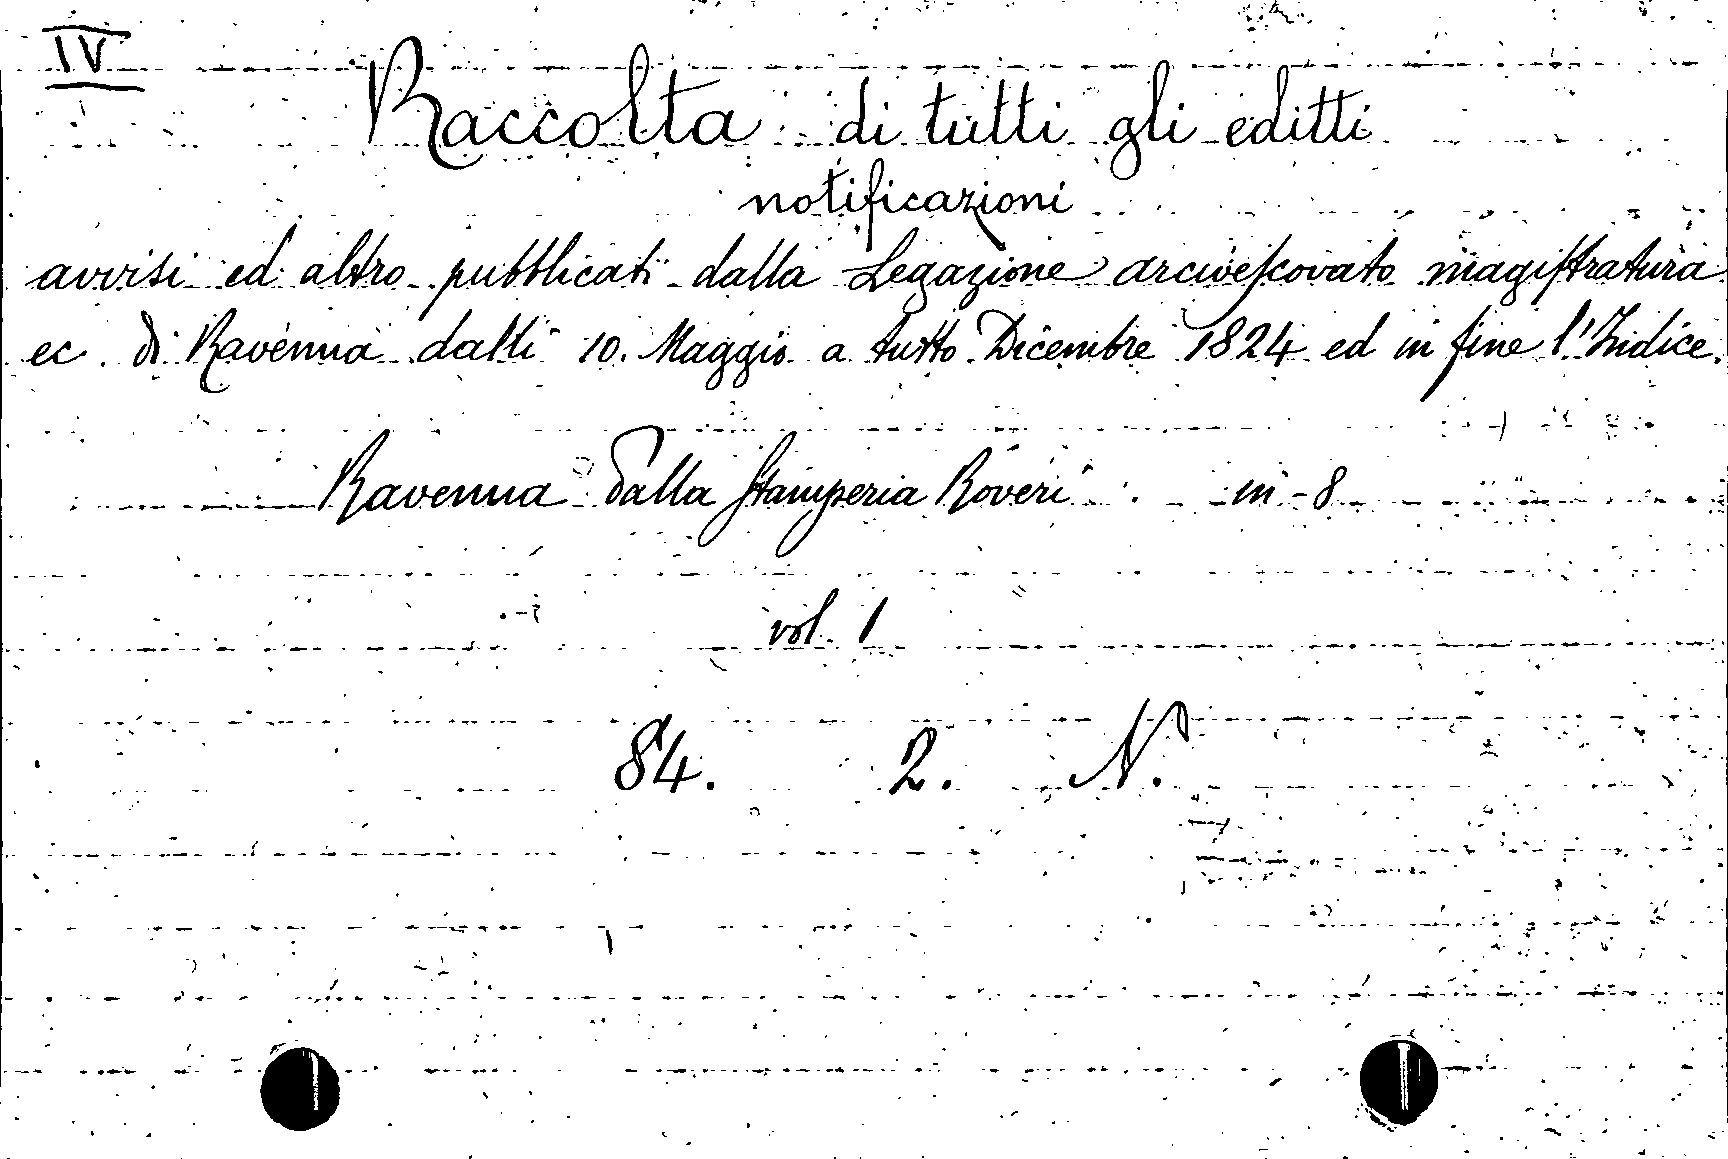 IV
Raccolta di tutti gli editti
notificazioni
avvisi ed altro pubblicati dalla Legazione arcivescovato magistratura
ec. di Ravenna dalli 10. Maggio a tutto Dicembre 1824 ed in fine l'Indice.
Ravenna dalla Stamperia Roveri . in-8
vol. 1
84. 2. N.